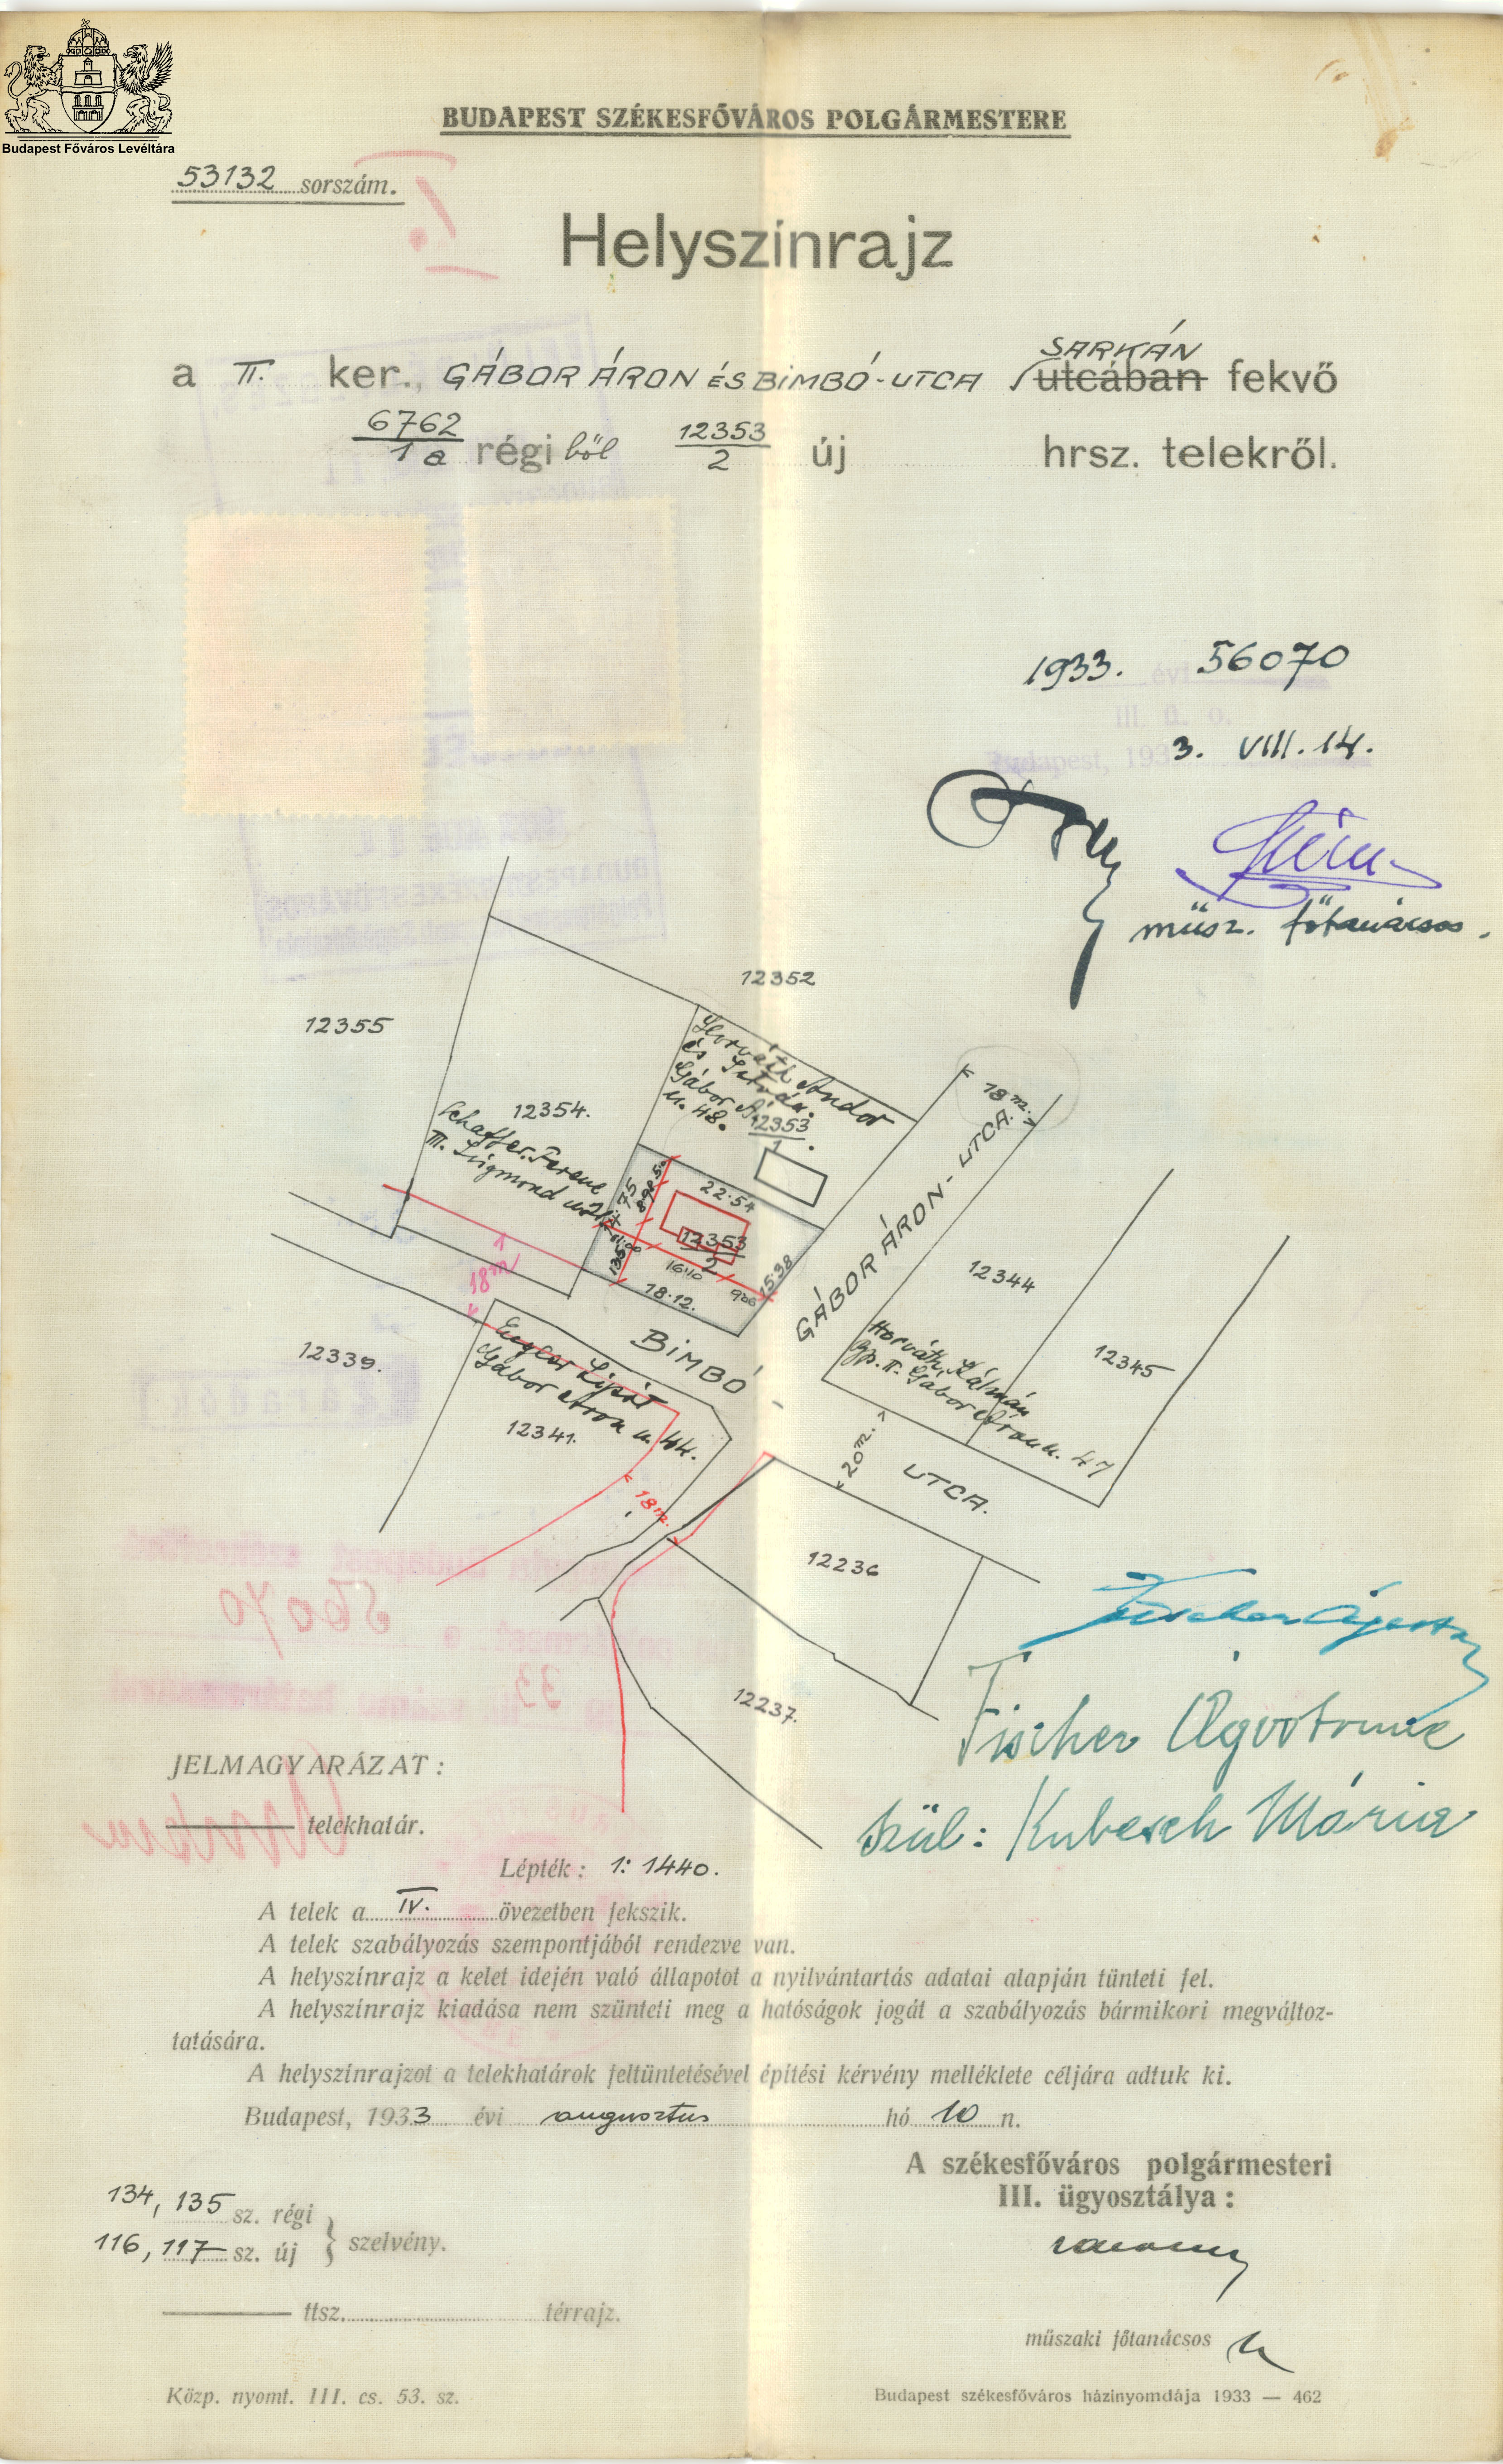 Budapest Főváros Levéltára
BUDAPEST SZÉKESFŐVÁROS POLGÁRMESTERE
53132 sorszám.
I.
Helyszínrajz
a II. ker., GÁBOR ÁRON ÉS BIMBÓ-UTCA SARKÁN utcában fekvő
6762/1a régi ből 12353/2 új hrsz. telekről.
1933. évi 56070
III. ü. o.
Budapest, 1933. VIII. 14.
műsz. főtanácsos.
12352
12355
Horváth Andor
és István.
Gábor Á.
u. 48.
12353/1.
12354.
Schaffer Ferenc
III. Zsigmond u.
18 m.
GÁBOR ÁRON-UTCA.
22.54
12353/2
16.10
18.12.
15.38
18 m
BIMBÓ-
UTCA.
12344
12345
12339.
Lipót
Gábor Áron u. 44.
12341.
Horváth Kálmán
Bp. II. Gábor Áron u. 47
20 m.
18 m.
12236
12237.
Fischer Ágoston
Fischer Ágostonné
szül: Kubesch Mária
JELMAGYARÁZAT:
telekhatár.
Lépték: 1:1440.
A telek a IV. övezetben fekszik.
A telek szabályozás szempontjából rendezve van.
A helyszínrajz a kelet idején való állapotot a nyilvántartás adatai alapján tünteti fel.
A helyszínrajz kiadása nem szünteti meg a hatóságok jogát a szabályozás bármikori megváltoz-
tatására.
A helyszínrajzot a telekhatárok feltüntetésével építési kérvény melléklete céljára adtuk ki.
Budapest, 1933 évi augusztus hó 10 n.
A székesfőváros polgármesteri
III. ügyosztálya:
134, 135 sz. régi
116, 117 sz. új } szelvény.
ttsz. térrajz.
műszaki főtanácsos
Közp. nyomt. III. cs. 53. sz.
Budapest székesfőváros házinyomdája 1933 — 462